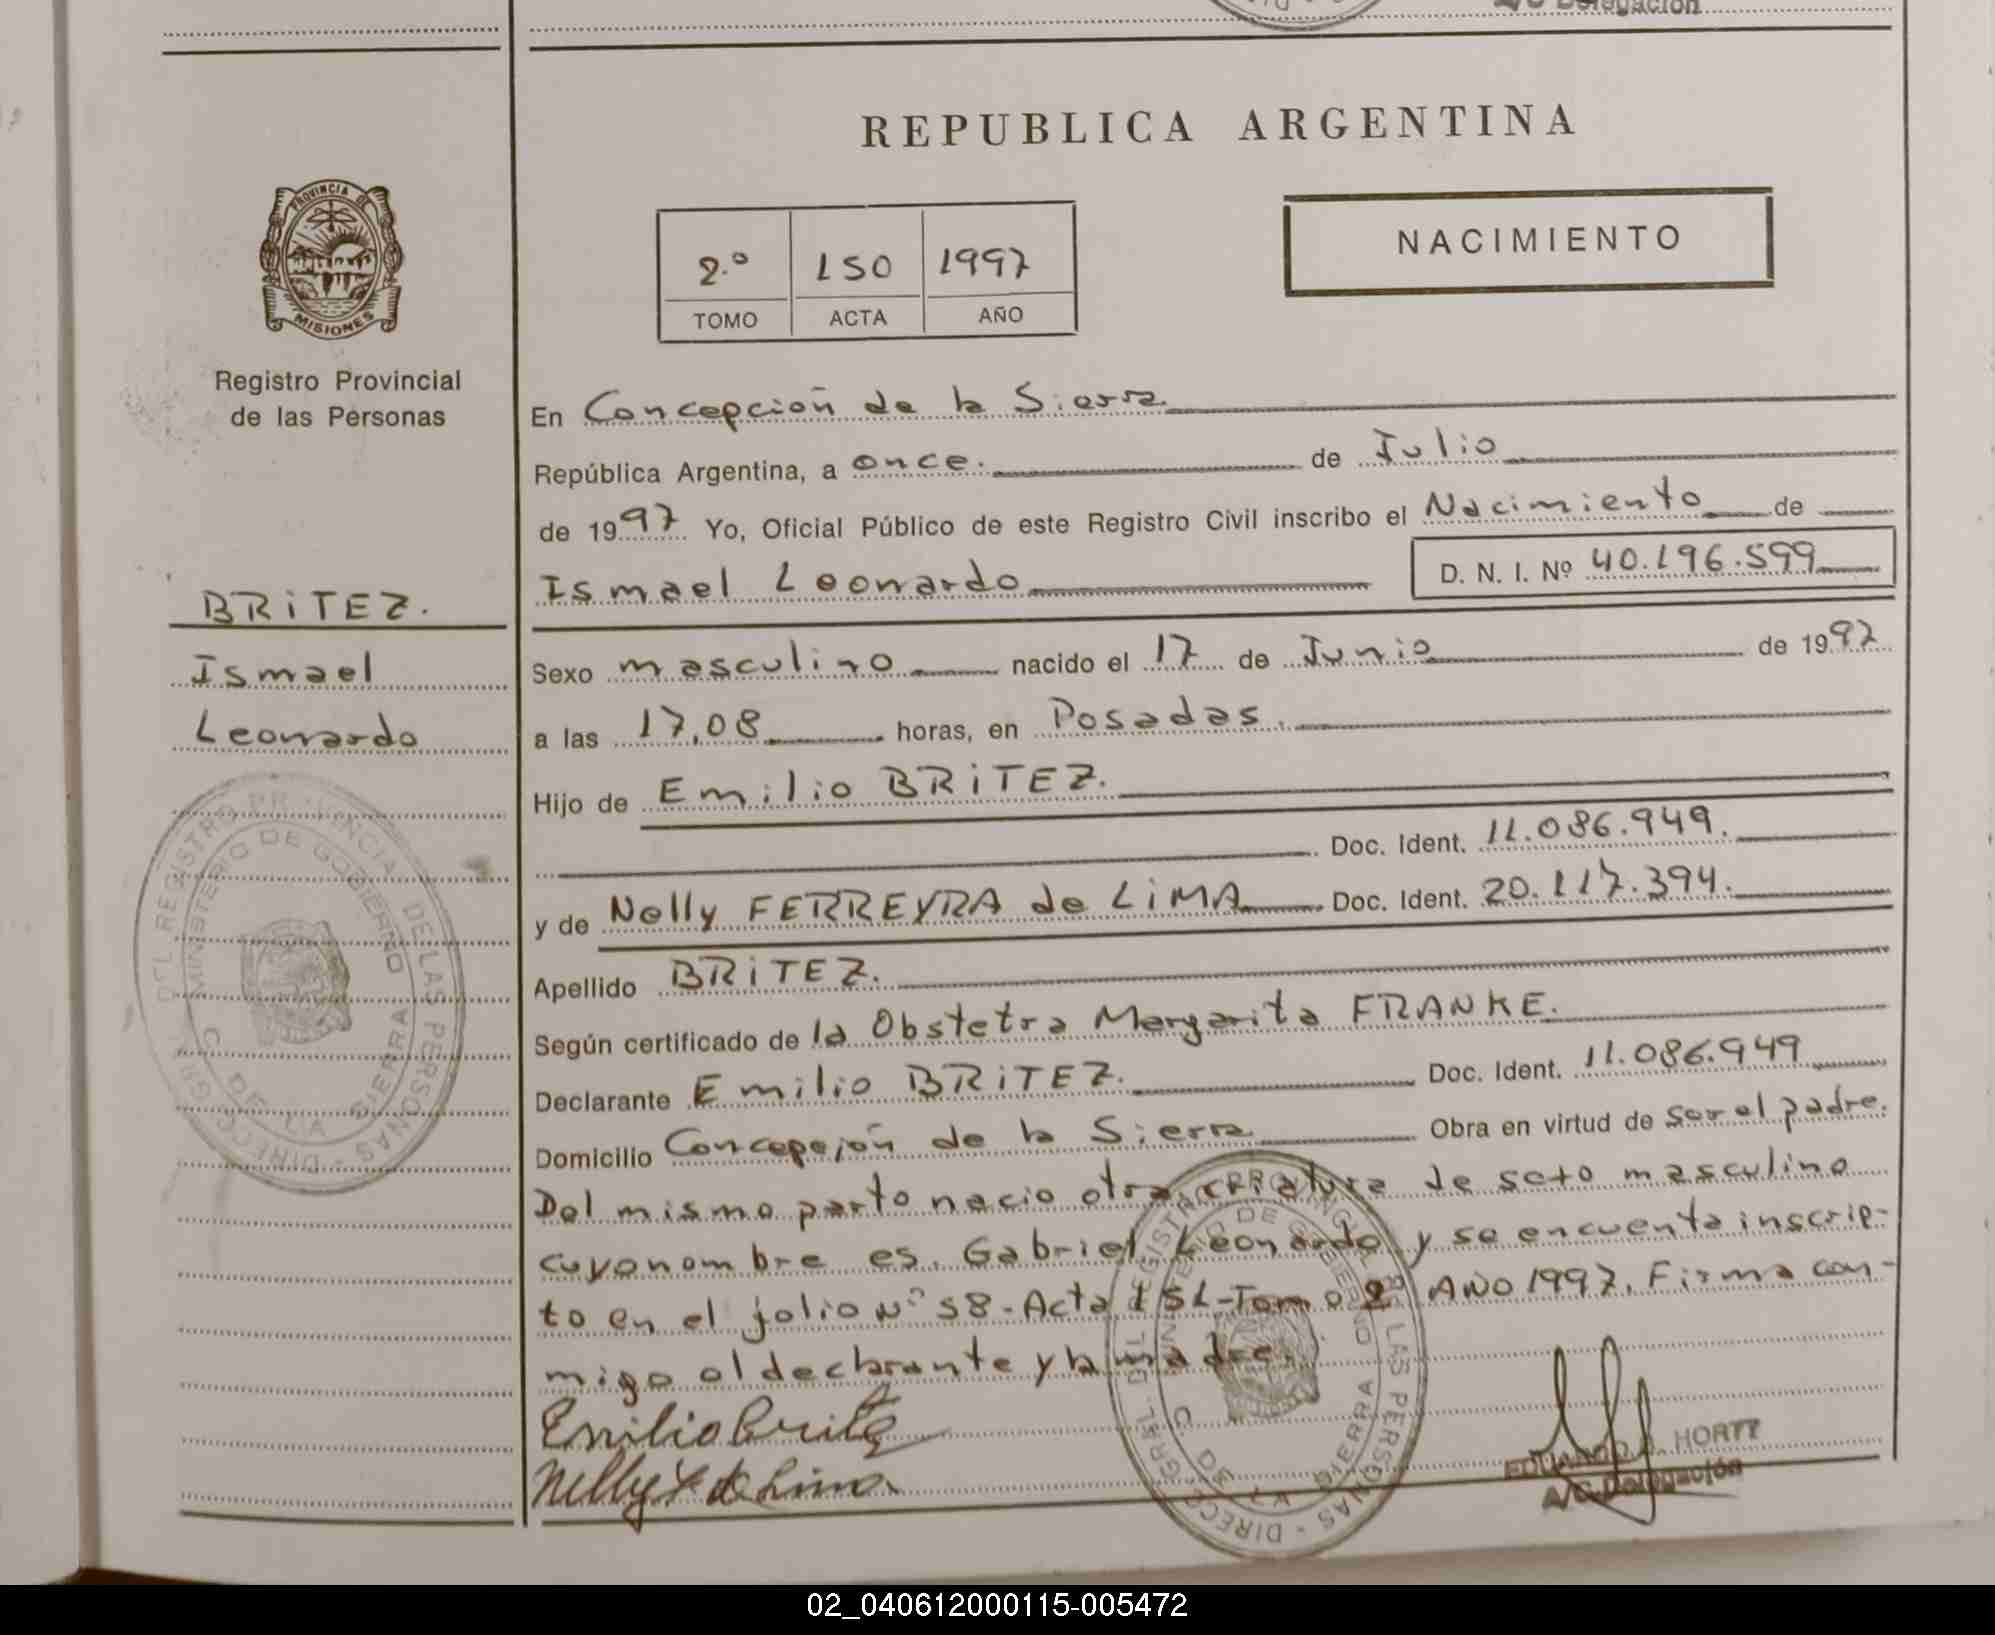 A/C Delegación
REPUBLICA ARGENTINA
PROVINCIA DE
MISIONES
Registro Provincial
de las Personas
2.º 150 1997
TOMO ACTA AÑO
NACIMIENTO
En Concepción de la Sierra
República Argentina, a once. de Julio
de 1997 Yo, Oficial Público de este Registro Civil inscribo el Nacimiento de
Ismael Leonardo D. N. I. Nº 40.196.599
BRITEZ.
Ismael
Leonardo
Sexo masculino nacido el 17 de Junio de 1997
a las 17,08 horas, en Posadas.
Hijo de Emilio BRITEZ.
Doc. Ident. 11.086.949.
y de Nelly FERREYRA de LIMA Doc. Ident. 20.117.394.
Apellido BRITEZ.
Según certificado de la Obstetra Margarita FRANKE.
Declarante Emilio BRITEZ. Doc. Ident. 11.086.949
Domicilio Concepción de la Sierra Obra en virtud de ser el padre.
Del mismo parto nacio otra criatura de seto masculino
cuyo nombre es. Gabriel Leonardo y se encuenta inscrip-
to en el folio Nº 58-Acta 151-Tomo 2º AÑO 1997. Firma con-
migo el declarante y la madre.
Emilio Britez
Nelly F de Lima.
DIRECC. GRAL. DEL REGISTRO PROVINCIAL DE LAS PERSONAS
MINISTERIO DE GOBIERNO
C. DE LA SIERRA
DIRECC. GRAL. DEL REGISTRO PROVINCIAL DE LAS PERSONAS
MINISTERIO DE GOBIERNO
C. DE LA SIERRA
EDUARDO HORTT
A/C Delegación
02_040612000115-005472